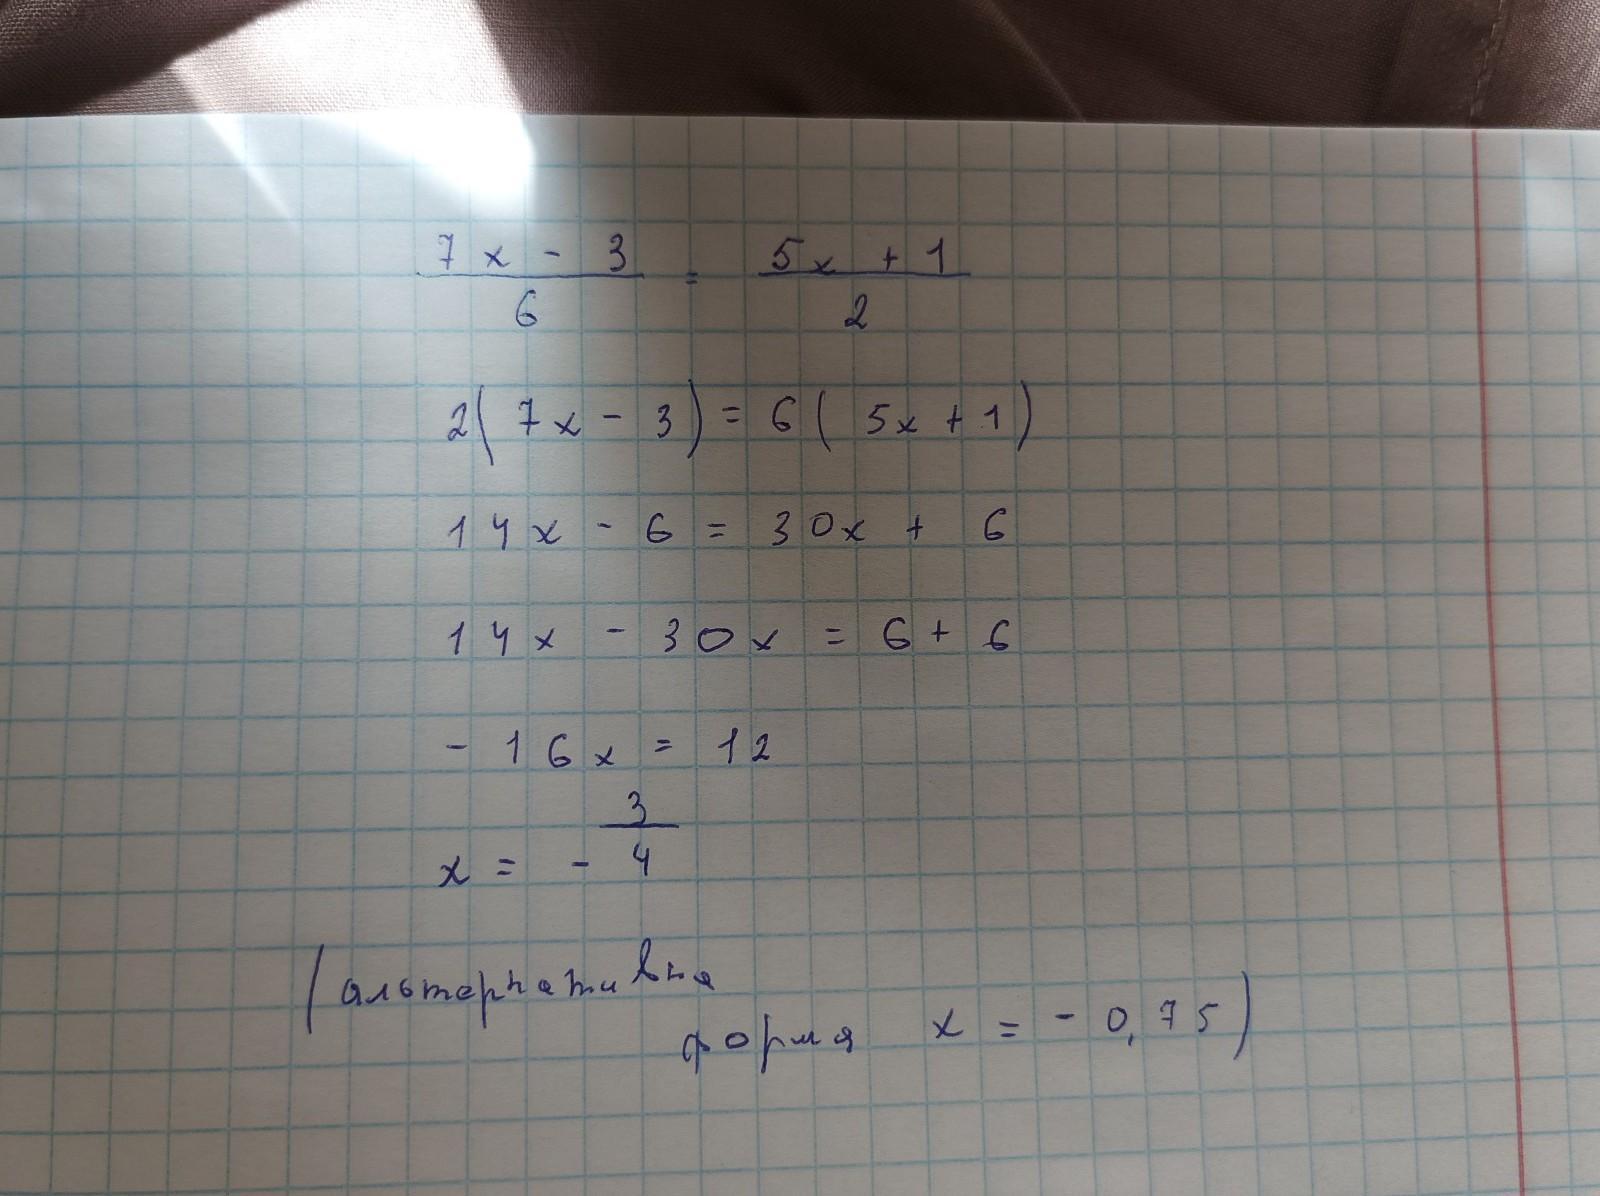 7x - 3 / 6 = 5x + 1 / 2
2(7x - 3) = 6(5x + 1)
14x - 6 = 30x + 6
14x - 30x = 6 + 6
-16x = 12
x = - 3/4
(альтернативна
форма x = - 0,75)